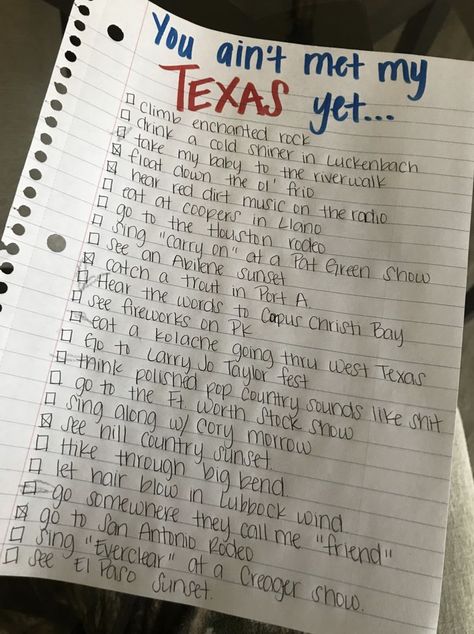 You ain't met my
TEXAS yet...
climb enchanted rock
drink a cold shiner in Luckenbach
take my baby to the riverwalk
float down the ol' frio
hear red dirt music on the radio
eat at coopers in Llano
go to the Houston rodeo
sing "carry on" at a Pat Green show
see an Abilene sunset
catch a trout in Port A
Hear the words to Corpus Christi Bay
see fireworks on PK
eat a kolache going thru west Texas
Go to Larry Jo Taylor fest
think polished pop country sounds like shit
go to the Ft Worth Stock Show
sing along w/ Cory morrow
see hill country sunset.
Hike through big bend.
let hair blow in Lubbock wind
go somewhere they call me "friend"
go to San Antonio Rodeo
sing "Everclear" at a Creager show.
see El Paso sunset.